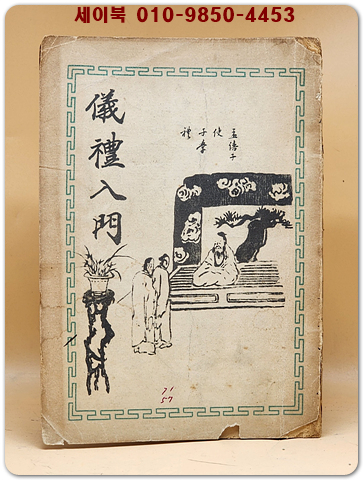 세이북 010-9850-4453
儀禮入門
孟僖子
使
子學
禮
71
57